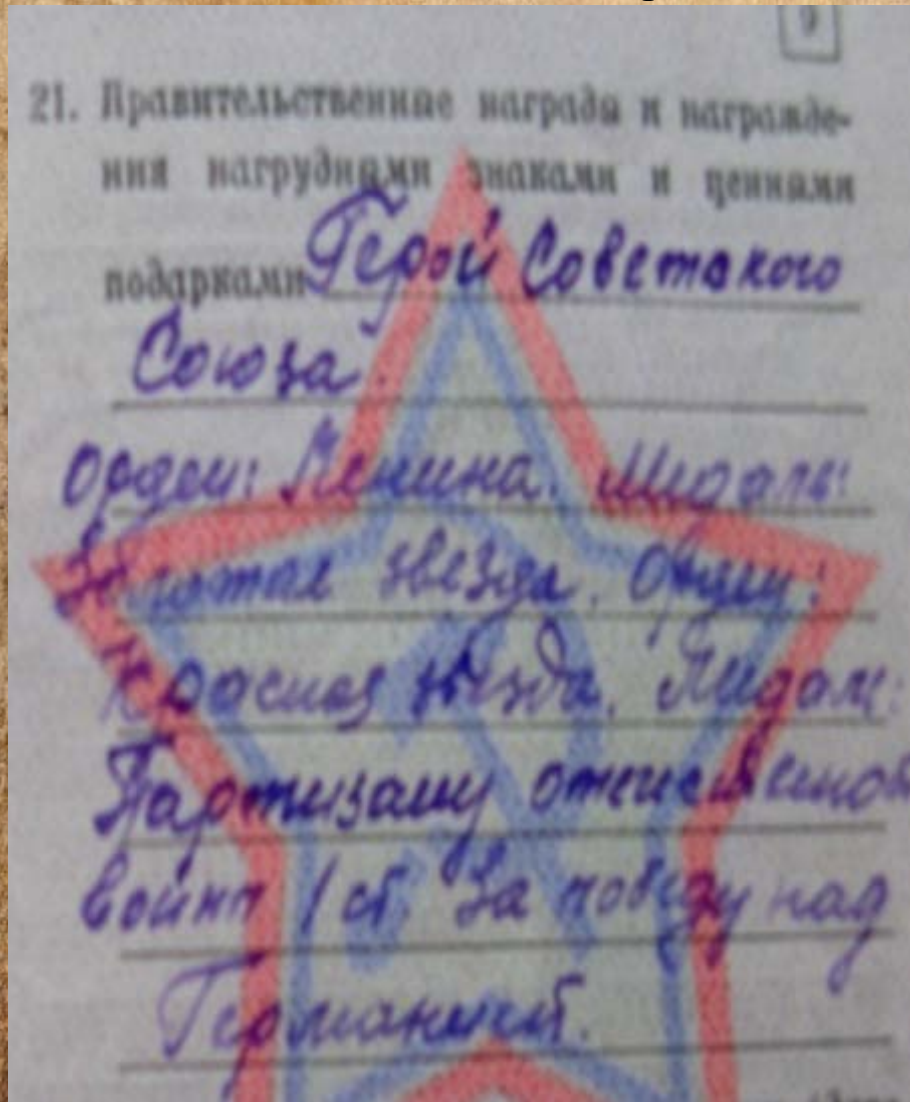 21. Правительственные награды и награжде-
ния нагрудными знаками и ценными
подарками Герой Советского
Союза.
Орден: Ленина. Медаль:
Золотая звезда. Орден:
Красная звезда. Медаль:
Партизану отечественной
войны I ст. За победу над
Германией.